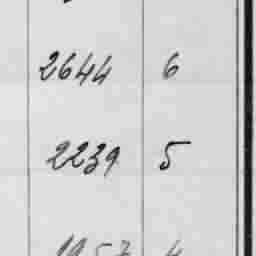 2644 6
2239 5